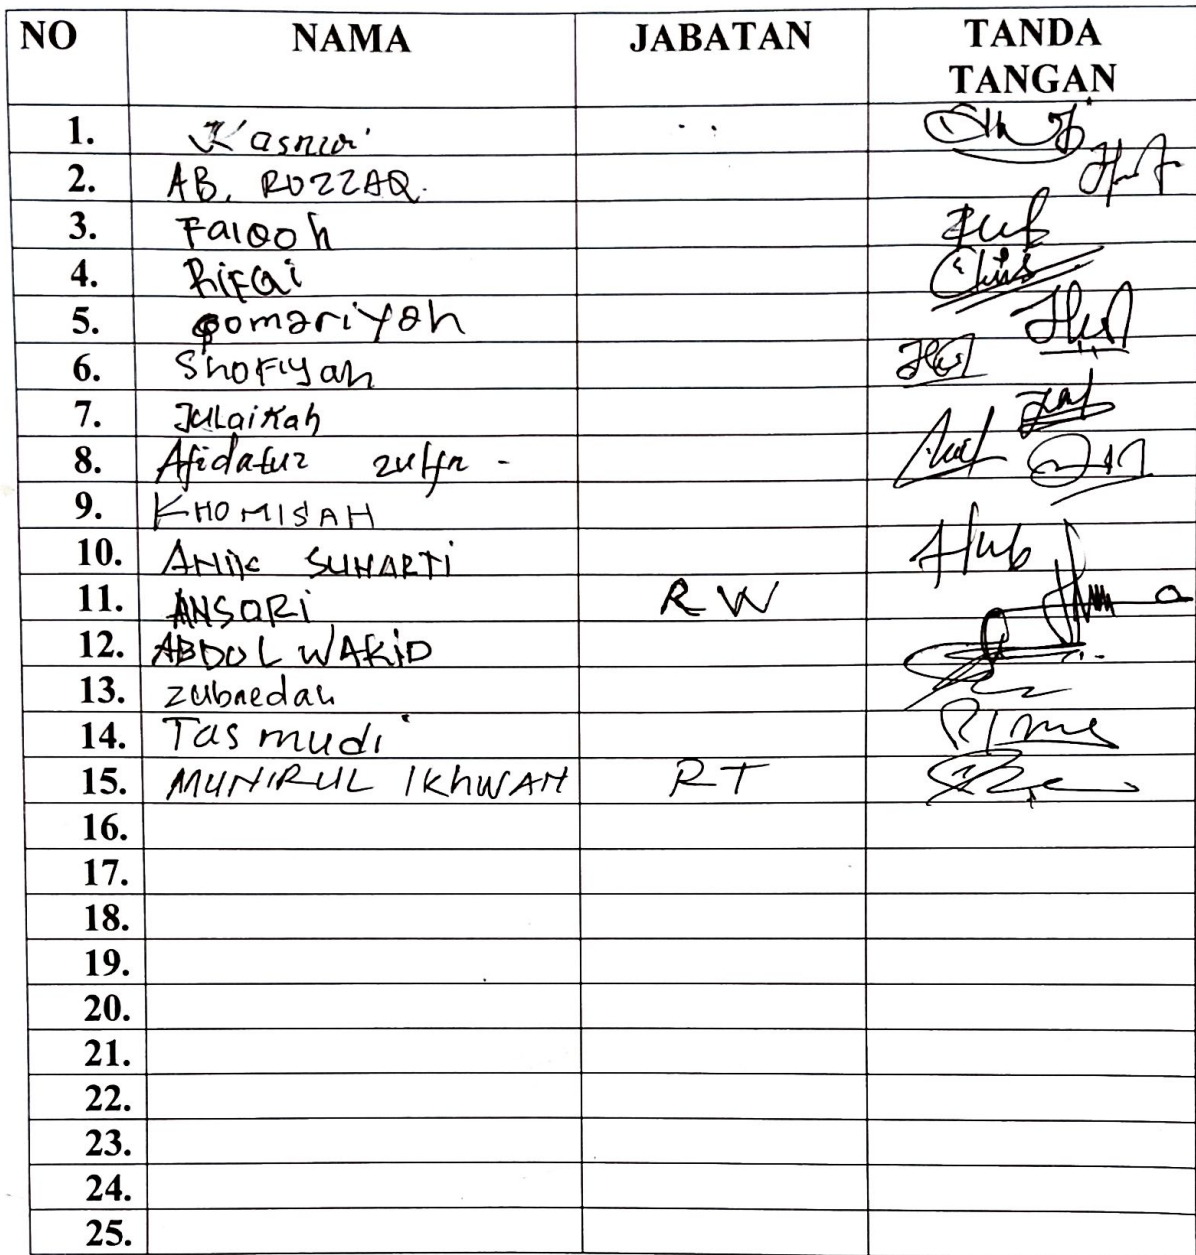 NO NAMA JABATAN TANDA TANGAN
1. Kasnui
2. AB. ROZZAQ.
3. Faiqoh
4. Rifqi
5. qomariyah
6. Shofiyah
7. Julaikah
8. Afidatuz zulfa -
9. KHOMISAH
10. ANIK SUHARTI
11. ANSORI RW
12. ABDOL WAKID
13. zubaedah
14. Tasmudi
15. MUNIRUL IKHWAN RT
16.
17.
18.
19.
20.
21.
22.
23.
24.
25.